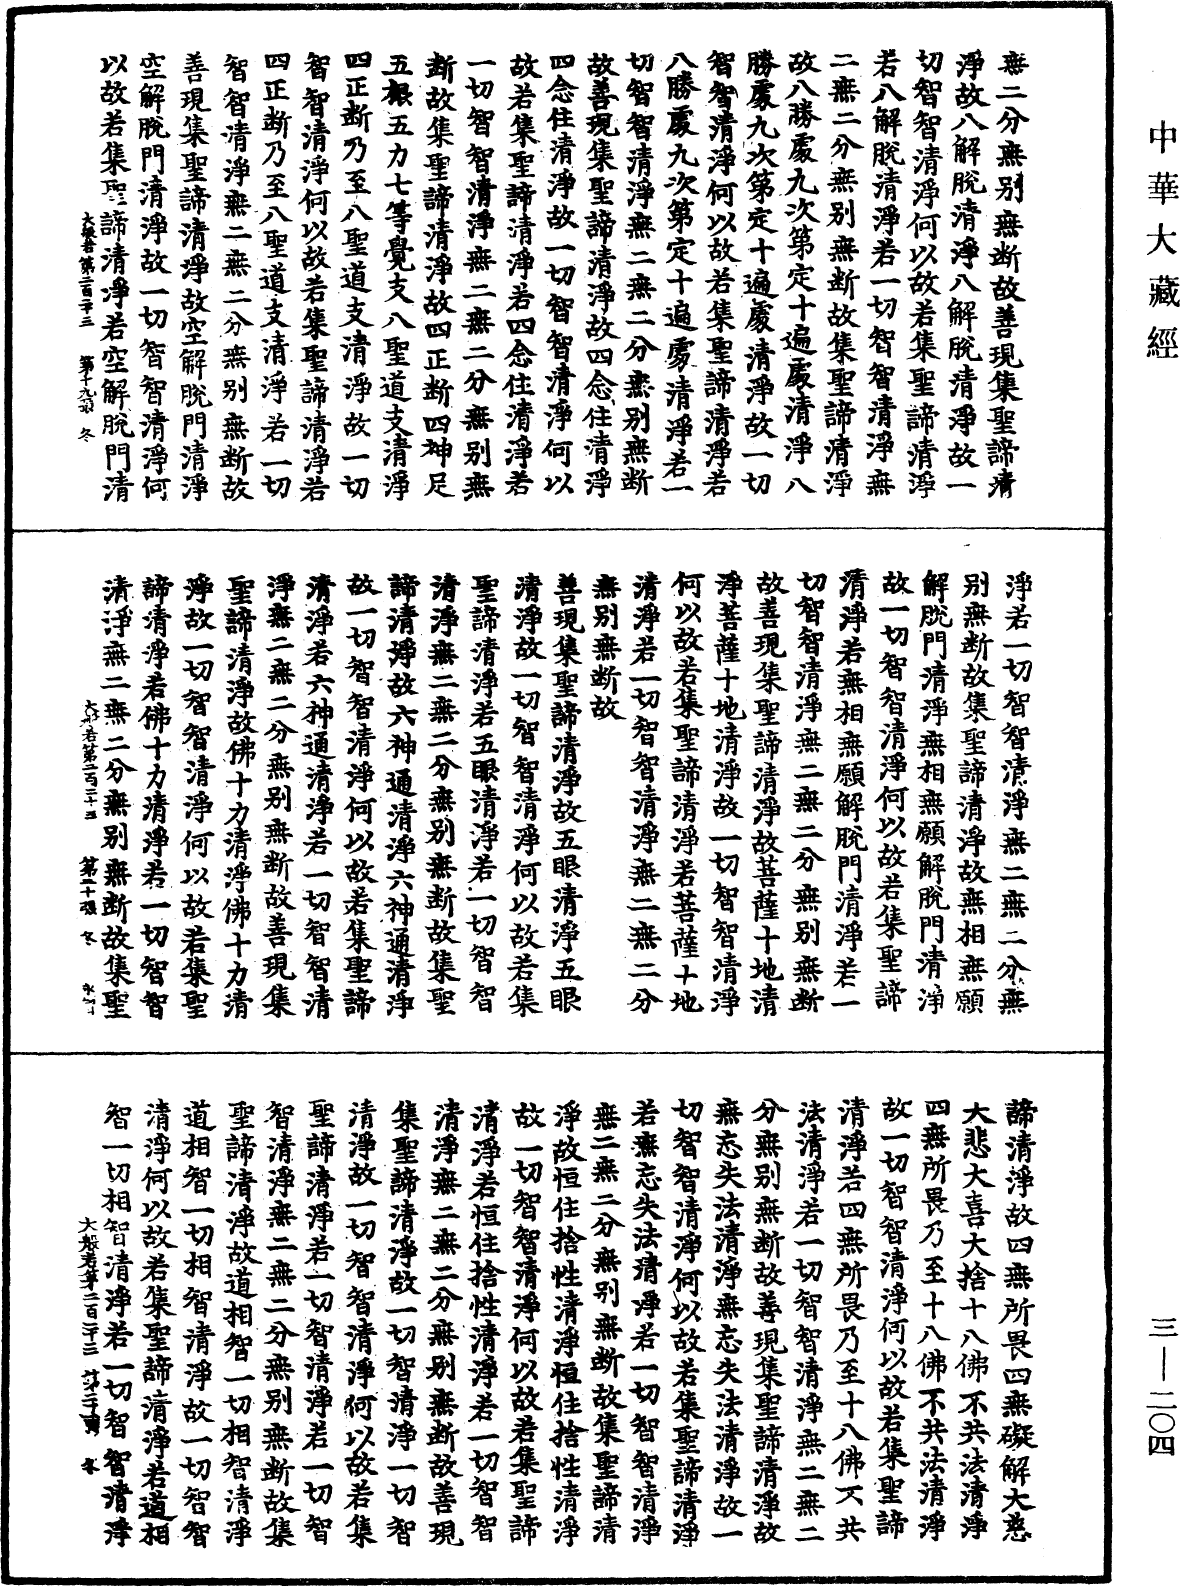 中華大藏經
無二分無别無断故善現集聖諦清
淨故八解脫清淨八解脫清淨故一
切智智清淨何以故若集聖諦清淨
若八解脫清淨若一切智智清淨無
二無二分無别無断故集聖諦清淨
故八勝處九次第定十遍處清淨八
勝處九次第定十遍處清淨故一切
智智清淨何以故若集聖諦清淨若
八勝處九次第定十遍處清淨若一
切智智清淨無二無二分無别無断
故善現集聖諦清淨故四念住清淨
四念住清淨故一切智智清淨何以
故若集聖諦清淨若四念住清淨若
一切智智清淨無二無二分無别無
断故集聖諦清淨故四正断四神足
五根五力七等覺支八聖道支清淨
四正断乃至八聖道支清淨故一切
智智清淨何以故若集聖諦清淨若
四正断乃至八聖道支清淨若一切
智智清淨無二無二分無别無断故
善現集聖諦清淨故空解脫門清淨
空解脫門清淨故一切智智清淨何
以故若集聖諦清淨若空解脫門清
大般若第二百二十三 第十九張 冬
淨若一切智智清淨無二無二分無
别無断故集聖諦清淨故無相無願
解脫門清淨無相無願解脫門清淨
故一切智智清淨何以故若集聖諦
清淨若無相無願解脫門清淨若一
切智智清淨無二無二分無别無断
故善現集聖諦清淨故菩薩十地清
淨菩薩十地清淨故一切智智清淨
何以故若集聖諦清淨若菩薩十地
清淨若一切智智清淨無二無二分
無别無断故
善現集聖諦清淨故五眼清淨五眼
清淨故一切智智清淨何以故若集
聖諦清淨若五眼清淨若一切智智
清淨無二無二分無别無断故集聖
諦清淨故六神通清淨六神通清淨
故一切智智清淨何以故若集聖諦
清淨若六神通清淨若一切智智清
淨無二無二分無别無断故善現集
聖諦清淨故佛十力清淨佛十力清
淨故一切智智清淨何以故若集聖
諦清淨若佛十力清淨若一切智智
清淨無二無二分無别無断故集聖
大般若第二百二十三 第二十張 冬
諦清淨故四無所畏四無礙解大慈
大悲大喜大捨十八佛不共法清淨
四無所畏乃至十八佛不共法清淨
故一切智智清淨何以故若集聖諦
清淨若四無所畏乃至十八佛不共
法清淨若一切智智清淨無二無二
分無别無断故善現集聖諦清淨故
無忘失法清淨無忘失法清淨故一
切智智清淨何以故若集聖諦清淨
若無忘失法清淨若一切智智清淨
無二無二分無别無断故集聖諦清
淨故恒住捨性清淨恒住捨性清淨
故一切智智清淨何以故若集聖諦
清淨若恒住捨性清淨若一切智智
清淨無二無二分無别無断故善現
集聖諦清淨故一切智清淨一切智
清淨故一切智智清淨何以故若集
聖諦清淨若一切智清淨若一切智
智清淨無二無二分無别無断故集
聖諦清淨故道相智一切相智清淨
道相智一切相智清淨故一切智智
清淨何以故若集聖諦清淨若道相
智一切相智清淨若一切智智清淨
大般若第二百二十三
三—二〇四